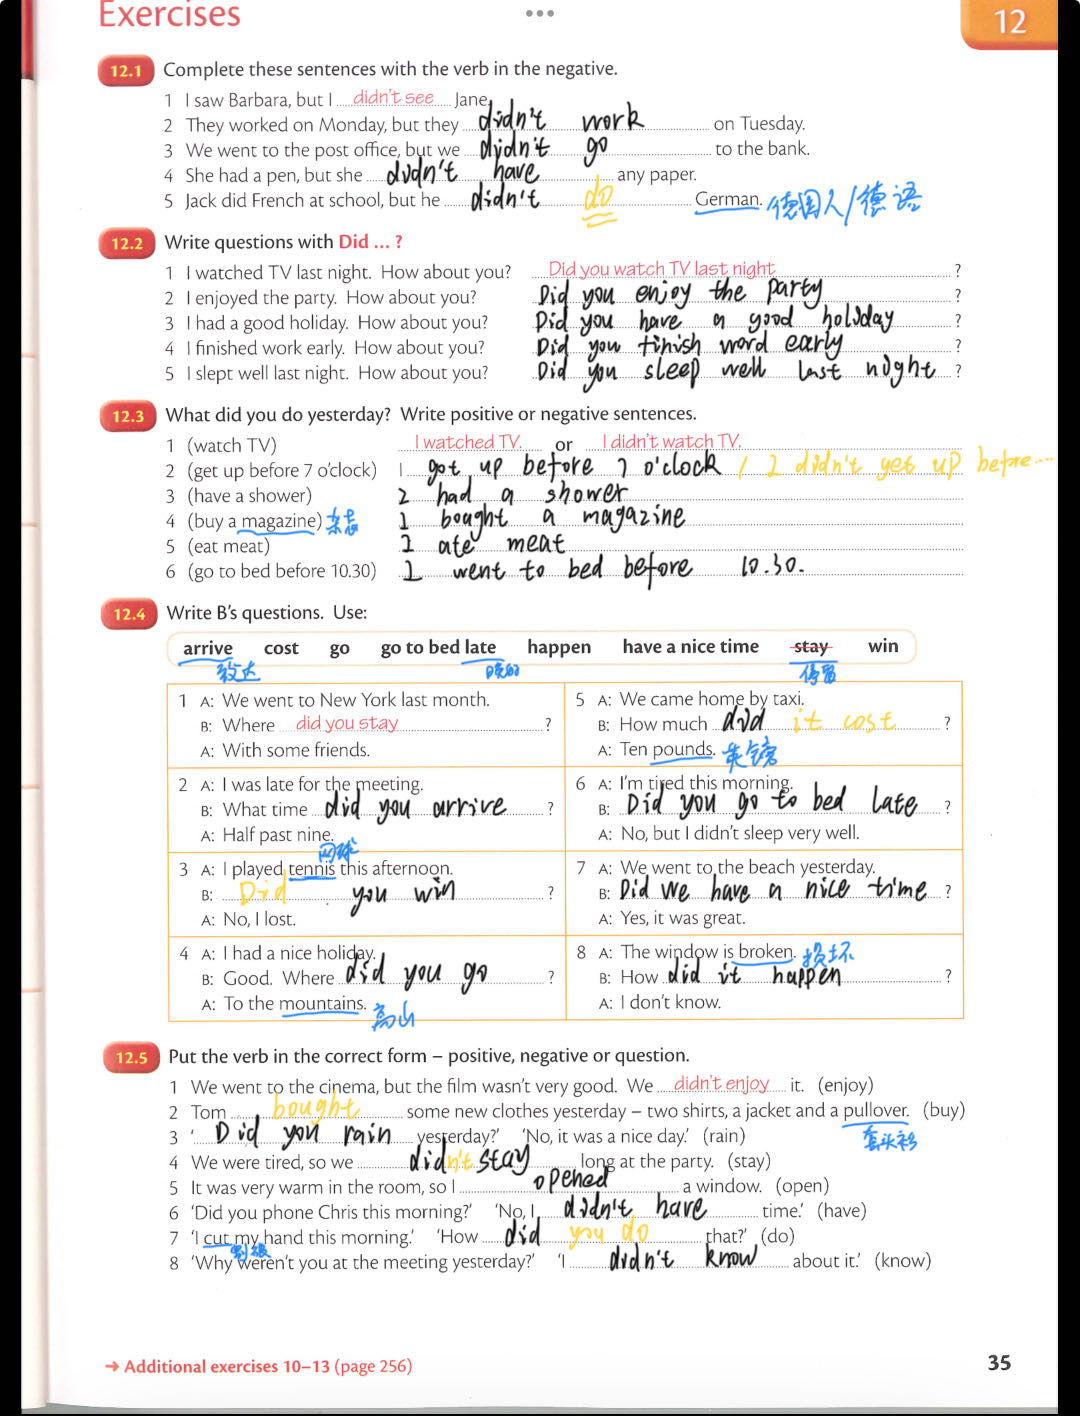 Exercises
12
12.1 Complete these sentences with the verb in the negative.
1 I saw Barbara, but I didn't see Jane.
2 They worked on Monday, but they didn't work on Tuesday.
3 We went to the post office, but we didn't go to the bank.
4 She had a pen, but she didn't have any paper.
5 Jack did French at school, but he didn't do German. 德国人/德语
12.2 Write questions with Did ... ?
1 I watched TV last night. How about you? Did you watch TV last night ?
2 I enjoyed the party. How about you? Did you enjoy the party ?
3 I had a good holiday. How about you? Did you have a good holiday ?
4 I finished work early. How about you? Did you finish word early ?
5 I slept well last night. How about you? Did you sleep well last night ?
12.3 What did you do yesterday? Write positive or negative sentences.
1 (watch TV) I watched TV. or I didn't watch TV.
2 (get up before 7 o'clock) I got up before 7 o'clock / I didn't get up before...
3 (have a shower) I had a shower
4 (buy a magazine) 杂志 I bought a magazine
5 (eat meat) I ate meat
6 (go to bed before 10.30) I went to bed before 10.30.
12.4 Write B's questions. Use:
arrive cost go go to bed late happen have a nice time stay win
到达 晚的 停留
1 A: We went to New York last month.
B: Where did you stay ?
A: With some friends.
2 A: I was late for the meeting.
B: What time did you arrive ?
A: Half past nine.
网球
3 A: I played tennis this afternoon.
B: Did you win ?
A: No, I lost.
4 A: I had a nice holiday.
B: Good. Where did you go ?
A: To the mountains. 高山
5 A: We came home by taxi.
B: How much did it cost ?
A: Ten pounds. 英镑
6 A: I'm tired this morning.
B: Did you go to bed late ?
A: No, but I didn't sleep very well.
7 A: We went to the beach yesterday.
B: Did we have a nice time ?
A: Yes, it was great.
8 A: The window is broken. 损坏
B: How did it happen ?
A: I don't know.
12.5 Put the verb in the correct form – positive, negative or question.
1 We went to the cinema, but the film wasn't very good. We didn't enjoy it. (enjoy)
2 Tom bought some new clothes yesterday – two shirts, a jacket and a pullover. (buy)
3 ' Did you rain yesterday?' 'No, it was a nice day.' (rain) 套头衫
4 We were tired, so we didn't stay long at the party. (stay)
5 It was very warm in the room, so I opened a window. (open)
6 'Did you phone Chris this morning?' 'No, I didn't have time.' (have)
7 'I cut my hand this morning.' 'How did you do that?' (do)
8 'Why weren't you at the meeting yesterday?' 'I didn't know about it.' (know)
➜ Additional exercises 10–13 (page 256)
35